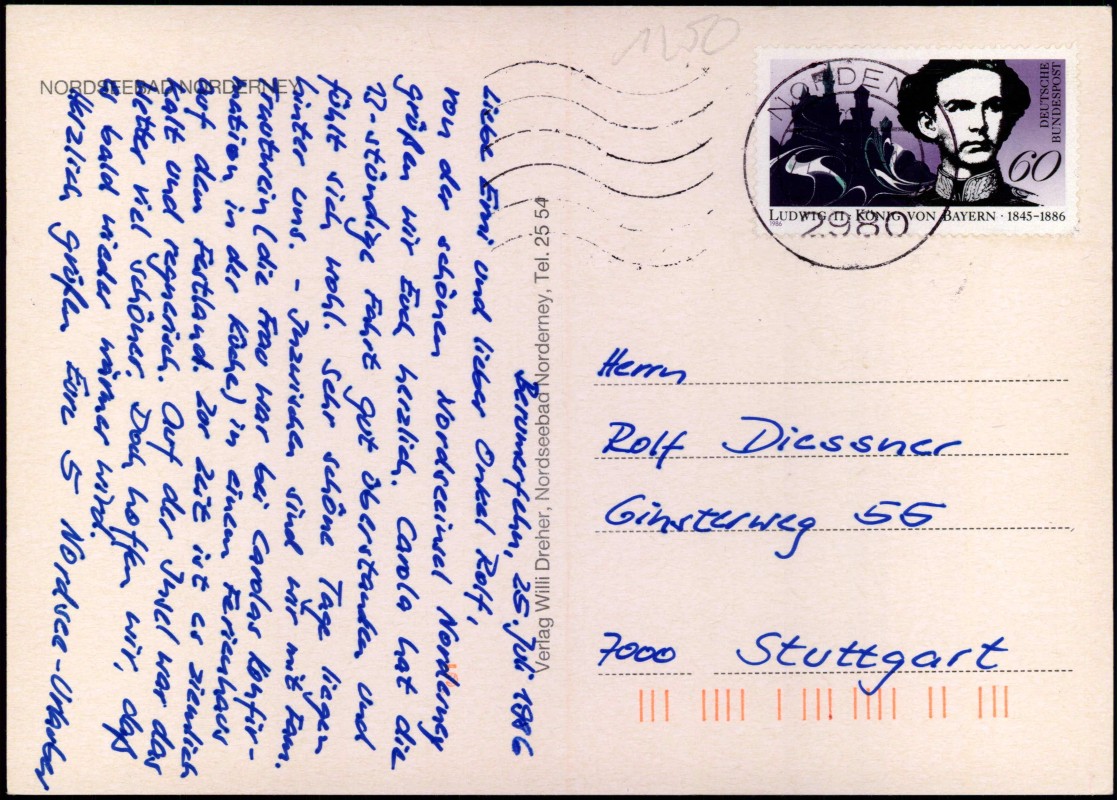 NORDSEEBAD NORDERNEY
Berumerfehn, 25. Juli 1986
Liebe Erni und lieber Onkel Rolf,
von der schönen Nordseeinsel Norderney
grüßen wir Euch herzlich. Carola hat die
13-stündige Fahrt gut überstanden und
fühlt sich wohl. Sehr schöne Tage liegen
hinter uns. - Inzwischen sind wir mit Fam.
(die Frau war bei Carolas Konfir-
mation in der Küche) in einem Ferienhaus
auf dem Festland. Zur Zeit ist es ziemlich
kalt und regnerisch. Auf der Insel war das
Wetter viel schöner. Doch hoffen wir, daß
es bald wieder wärmer wird.
Herzlich grüßen Eure 5 Nordsee-Urlauber
Verlag Willi Dreher, Nordseebad Norderney, Tel. 25 54
1250
NORDEN
2980
DEUTSCHE
BUNDESPOST
60
LUDWIG II · KÖNIG VON BAYERN · 1845-1886
1986
Herrn
Rolf Diessner
Ginsterweg 5G
7000 Stuttgart